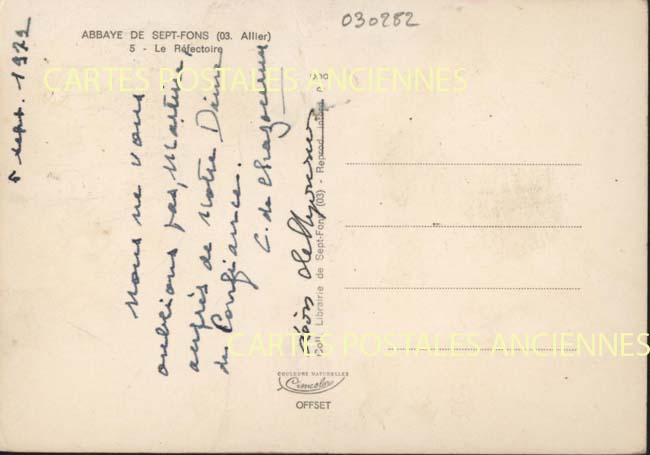 030282
ABBAYE DE SEPT-FONS (03. Allier)
5 - Le Réfectoire
CARTES POSTALES ANCIENNES
5 sept. 1972
Nous ne vous
oublions pas, Martine,
auprès de Notre Dame
de Confiance.
C. de Chazournes
Coll. Librairie de Sept-Fons (03) - Reprod. interd.
CARTES POSTALES ANCIENNES
COULEURS NATURELLES
Cimcolor
OFFSET